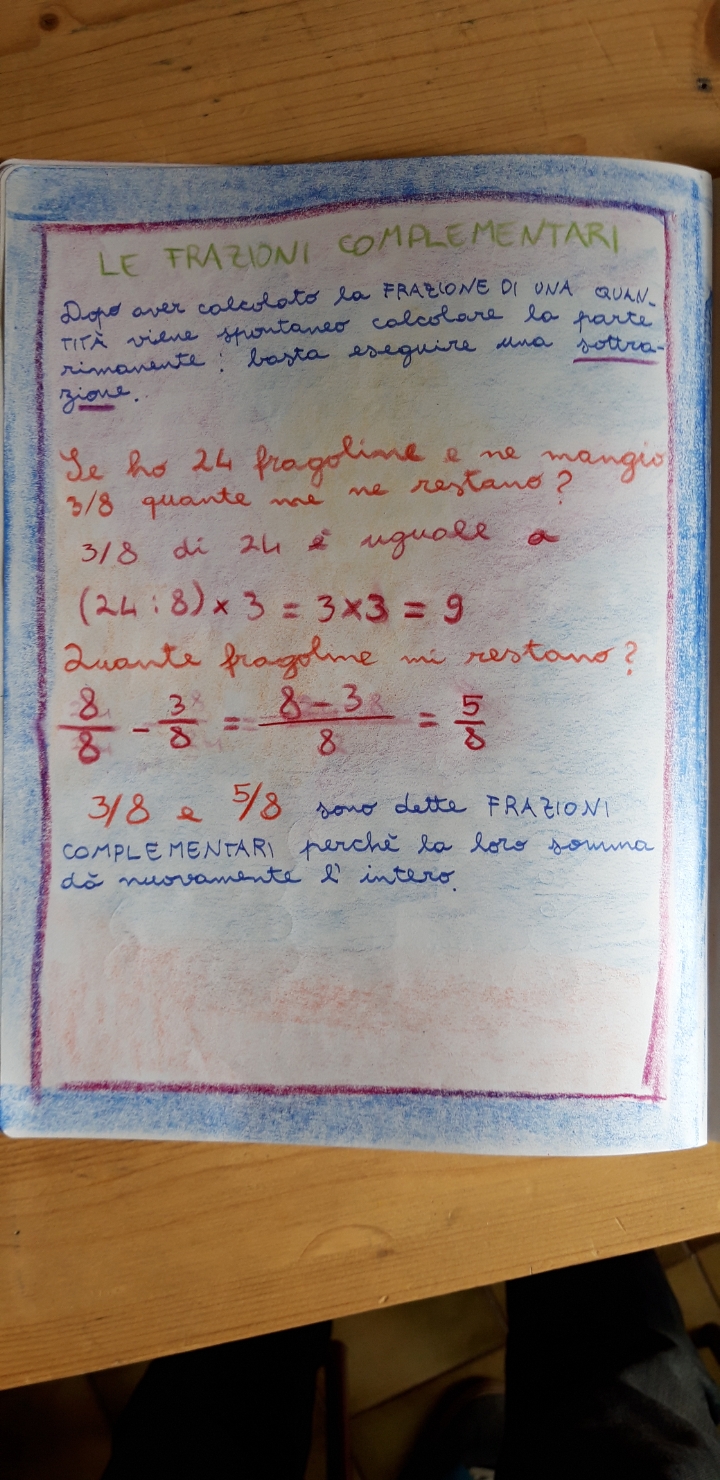 LE FRAZIONI COMPLEMENTARI
Dopo aver calcolato la FRAZIONE DI UNA QUAN-
TITÀ viene spontaneo calcolare la parte
rimanente: basta eseguire una sottra-
zione.
Se ho 24 fragoline e ne mangio
3/8 quante me ne restano?
3/8 di 24 è uguale a
(24:8)×3 = 3×3 = 9
Quante fragoline mi restano?
8/8 - 3/8 = 8-3/8 = 5/8
3/8 e 5/8 sono dette FRAZIONI
COMPLEMENTARI perchè la loro somma
dà nuovamente l'intero.